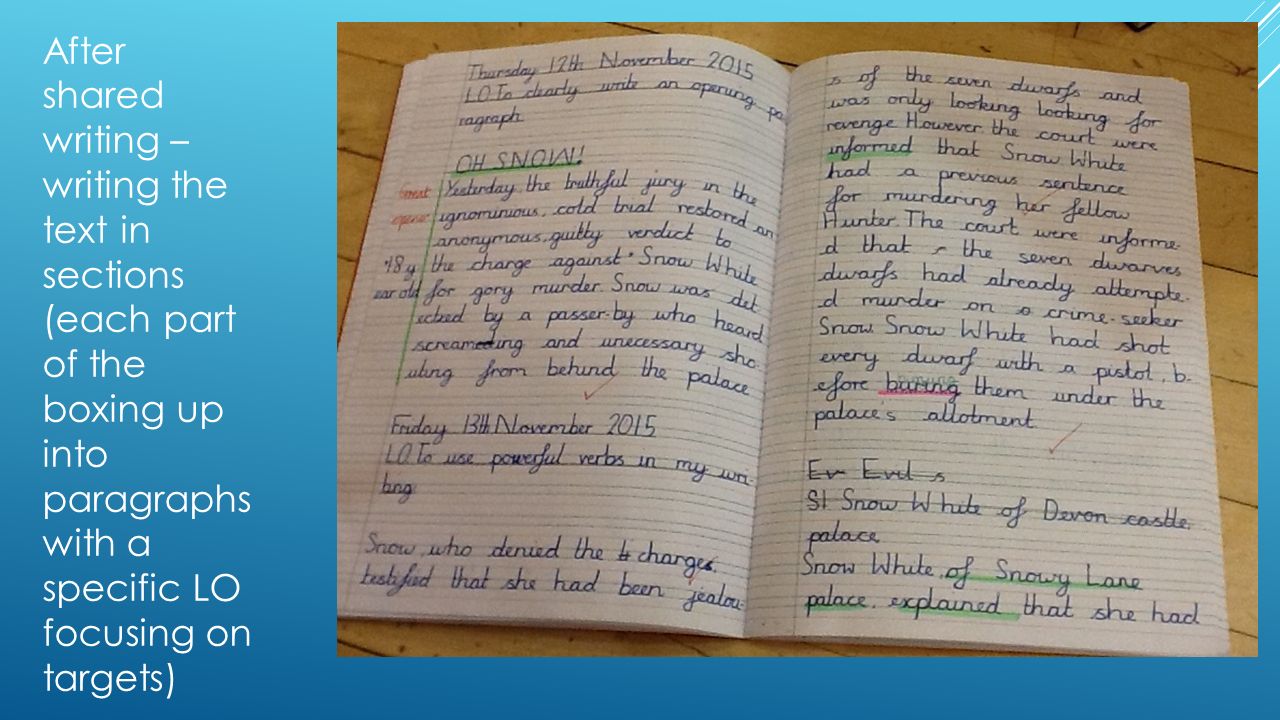 After
shared
writing –
writing the
text in
sections
(each part
of the
boxing up
into
paragraphs
with a
specific LO
focusing on
targets)
Thursday 12th November 2015
LO.To clearly write an opening pa-
ragraph
OH SNOW!
great
opener
Yesterday, the truthful jury in the
ignominious, cold trial restored an
anonymous, guilty verdict to
*18 y
ear old
the charge against * Snow White
for gory murder. Snow was det-
ected by a passer-by who heard
screameding and unecessary sho-
uting from behind the palace
Friday 13th November 2015
LO.To use powerful verbs in my wri-
ting
Snow, who denied the charges,
testified that she had been jealou-
s of the seven dwarfs and
was only looking looking for
revenge. However, the court were
informed that Snow White
had a previous sentence
for murdering her fellow
Hunter. The court were informe-
d that the seven dwarves
dwarfs had already attempte-
d murder on a crime-seeker
Snow. Snow White had shot
every dwarf with a pistol, b-
efore buring them under the
palace's allotment
Ev Evil s
St Snow White of Devon castle
palace
Snow White, of Snowy Lane
palace, explained that she had